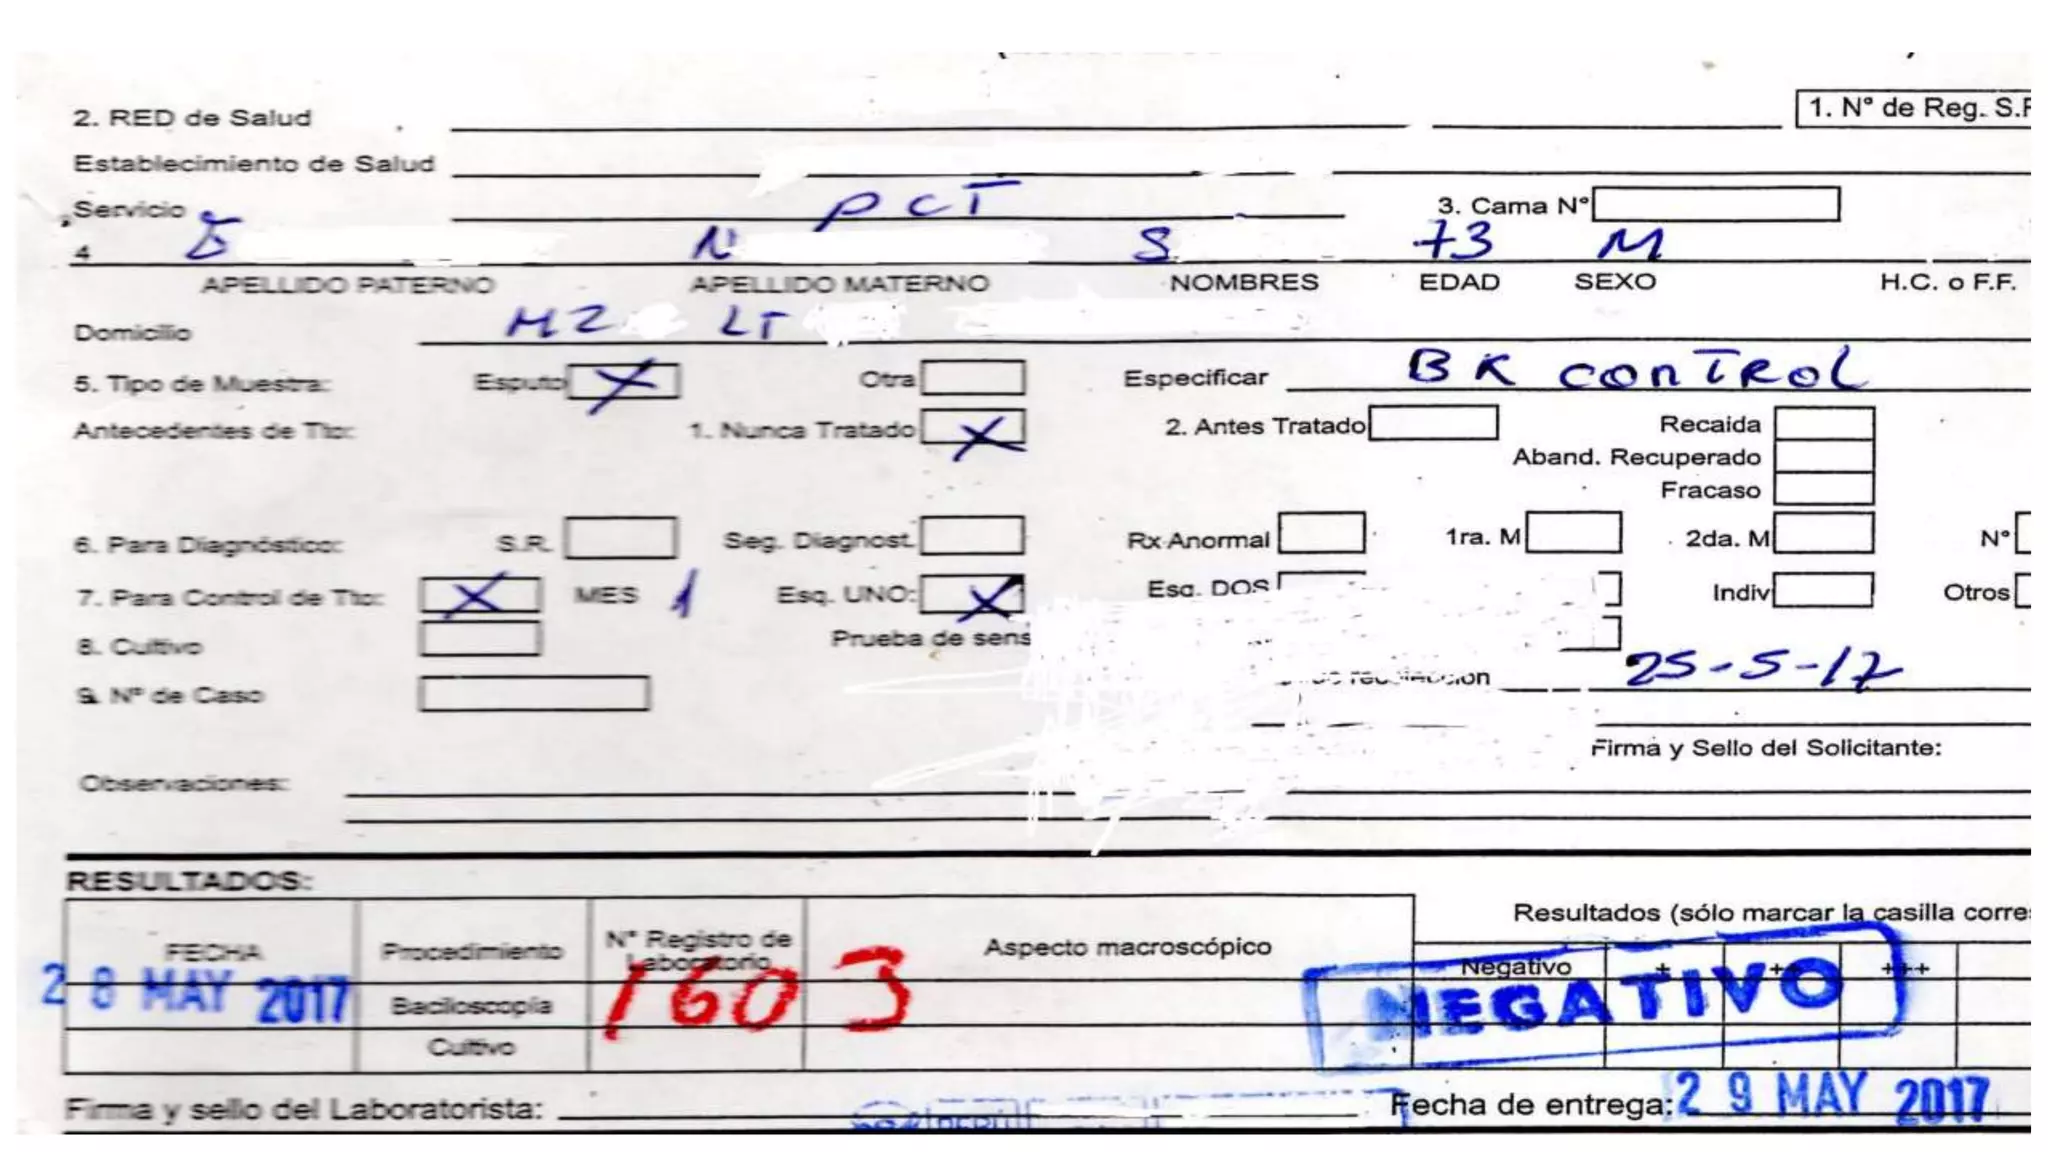 1. N° de Reg. S.R
2. RED de Salud
Establecimiento de Salud
Servicio PCT 3. Cama N°
4 N S 73 M
APELLIDO PATERNO APELLIDO MATERNO NOMBRES EDAD SEXO H.C. o F.F.
Domicilio MZ LT
5. Tipo de Muestra: Esputo X Otra Especificar BK CONTROL
Antecedentes de Tto: 1. Nunca Tratado X 2. Antes Tratado Recaida
Aband. Recuperado
Fracaso
6. Para Diagnóstico: S.R. Seg. Diagnost. Rx Anormal 1ra. M 2da. M N°
7. Para Control de Tto: X MES 1 Esq. UNO: X Esq. DOS Indiv Otros
8. Cultivo Prueba de sens
9. N° de Caso 25-5-17
Firma y Sello del Solicitante:
Observaciones:
RESULTADOS:
FECHA Procedimiento N° Registro de Laboratorio Aspecto macroscópico Resultados (sólo marcar la casilla corre
Negativo + ++ +++
28 MAY 2017 Baciloscopía 1603 NEGATIVO
Cultivo
Firma y sello del Laboratorista: Fecha de entrega: 29 MAY 2017